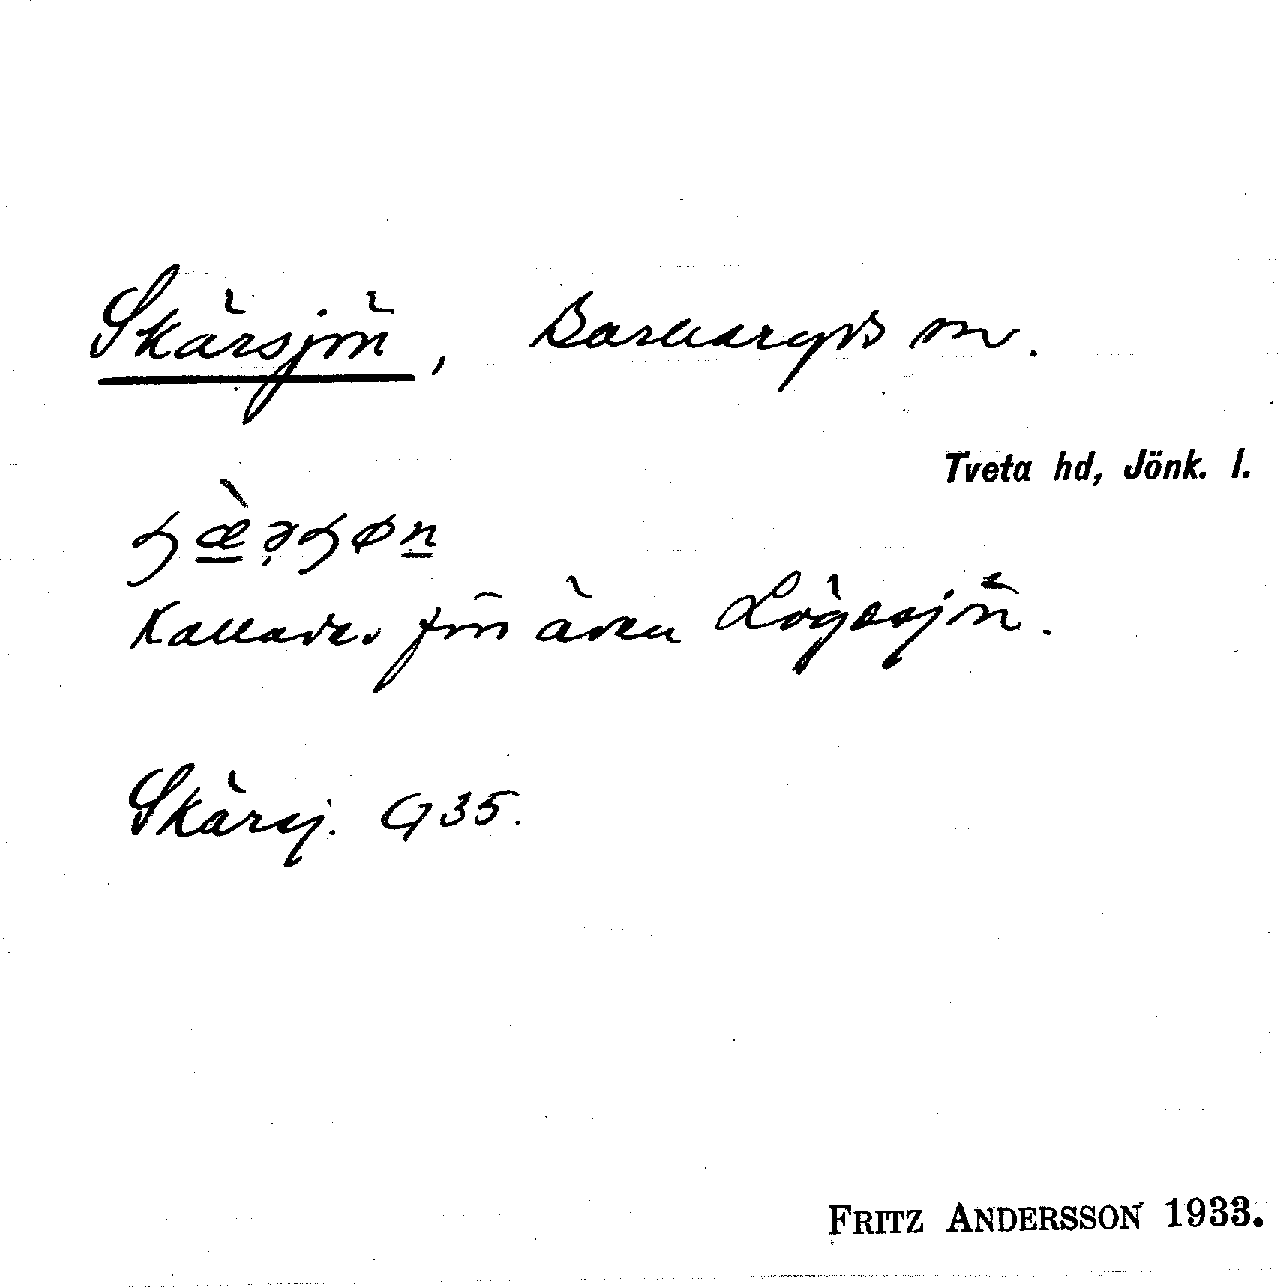 Skärsjön, Barkeryds sn.
Tveta hd, Jönk. l.
ɧæ̀əɧøn
Kallades förr även Lögesjön.
Skärsj. G 35.
FRITZ ANDERSSON 1933.